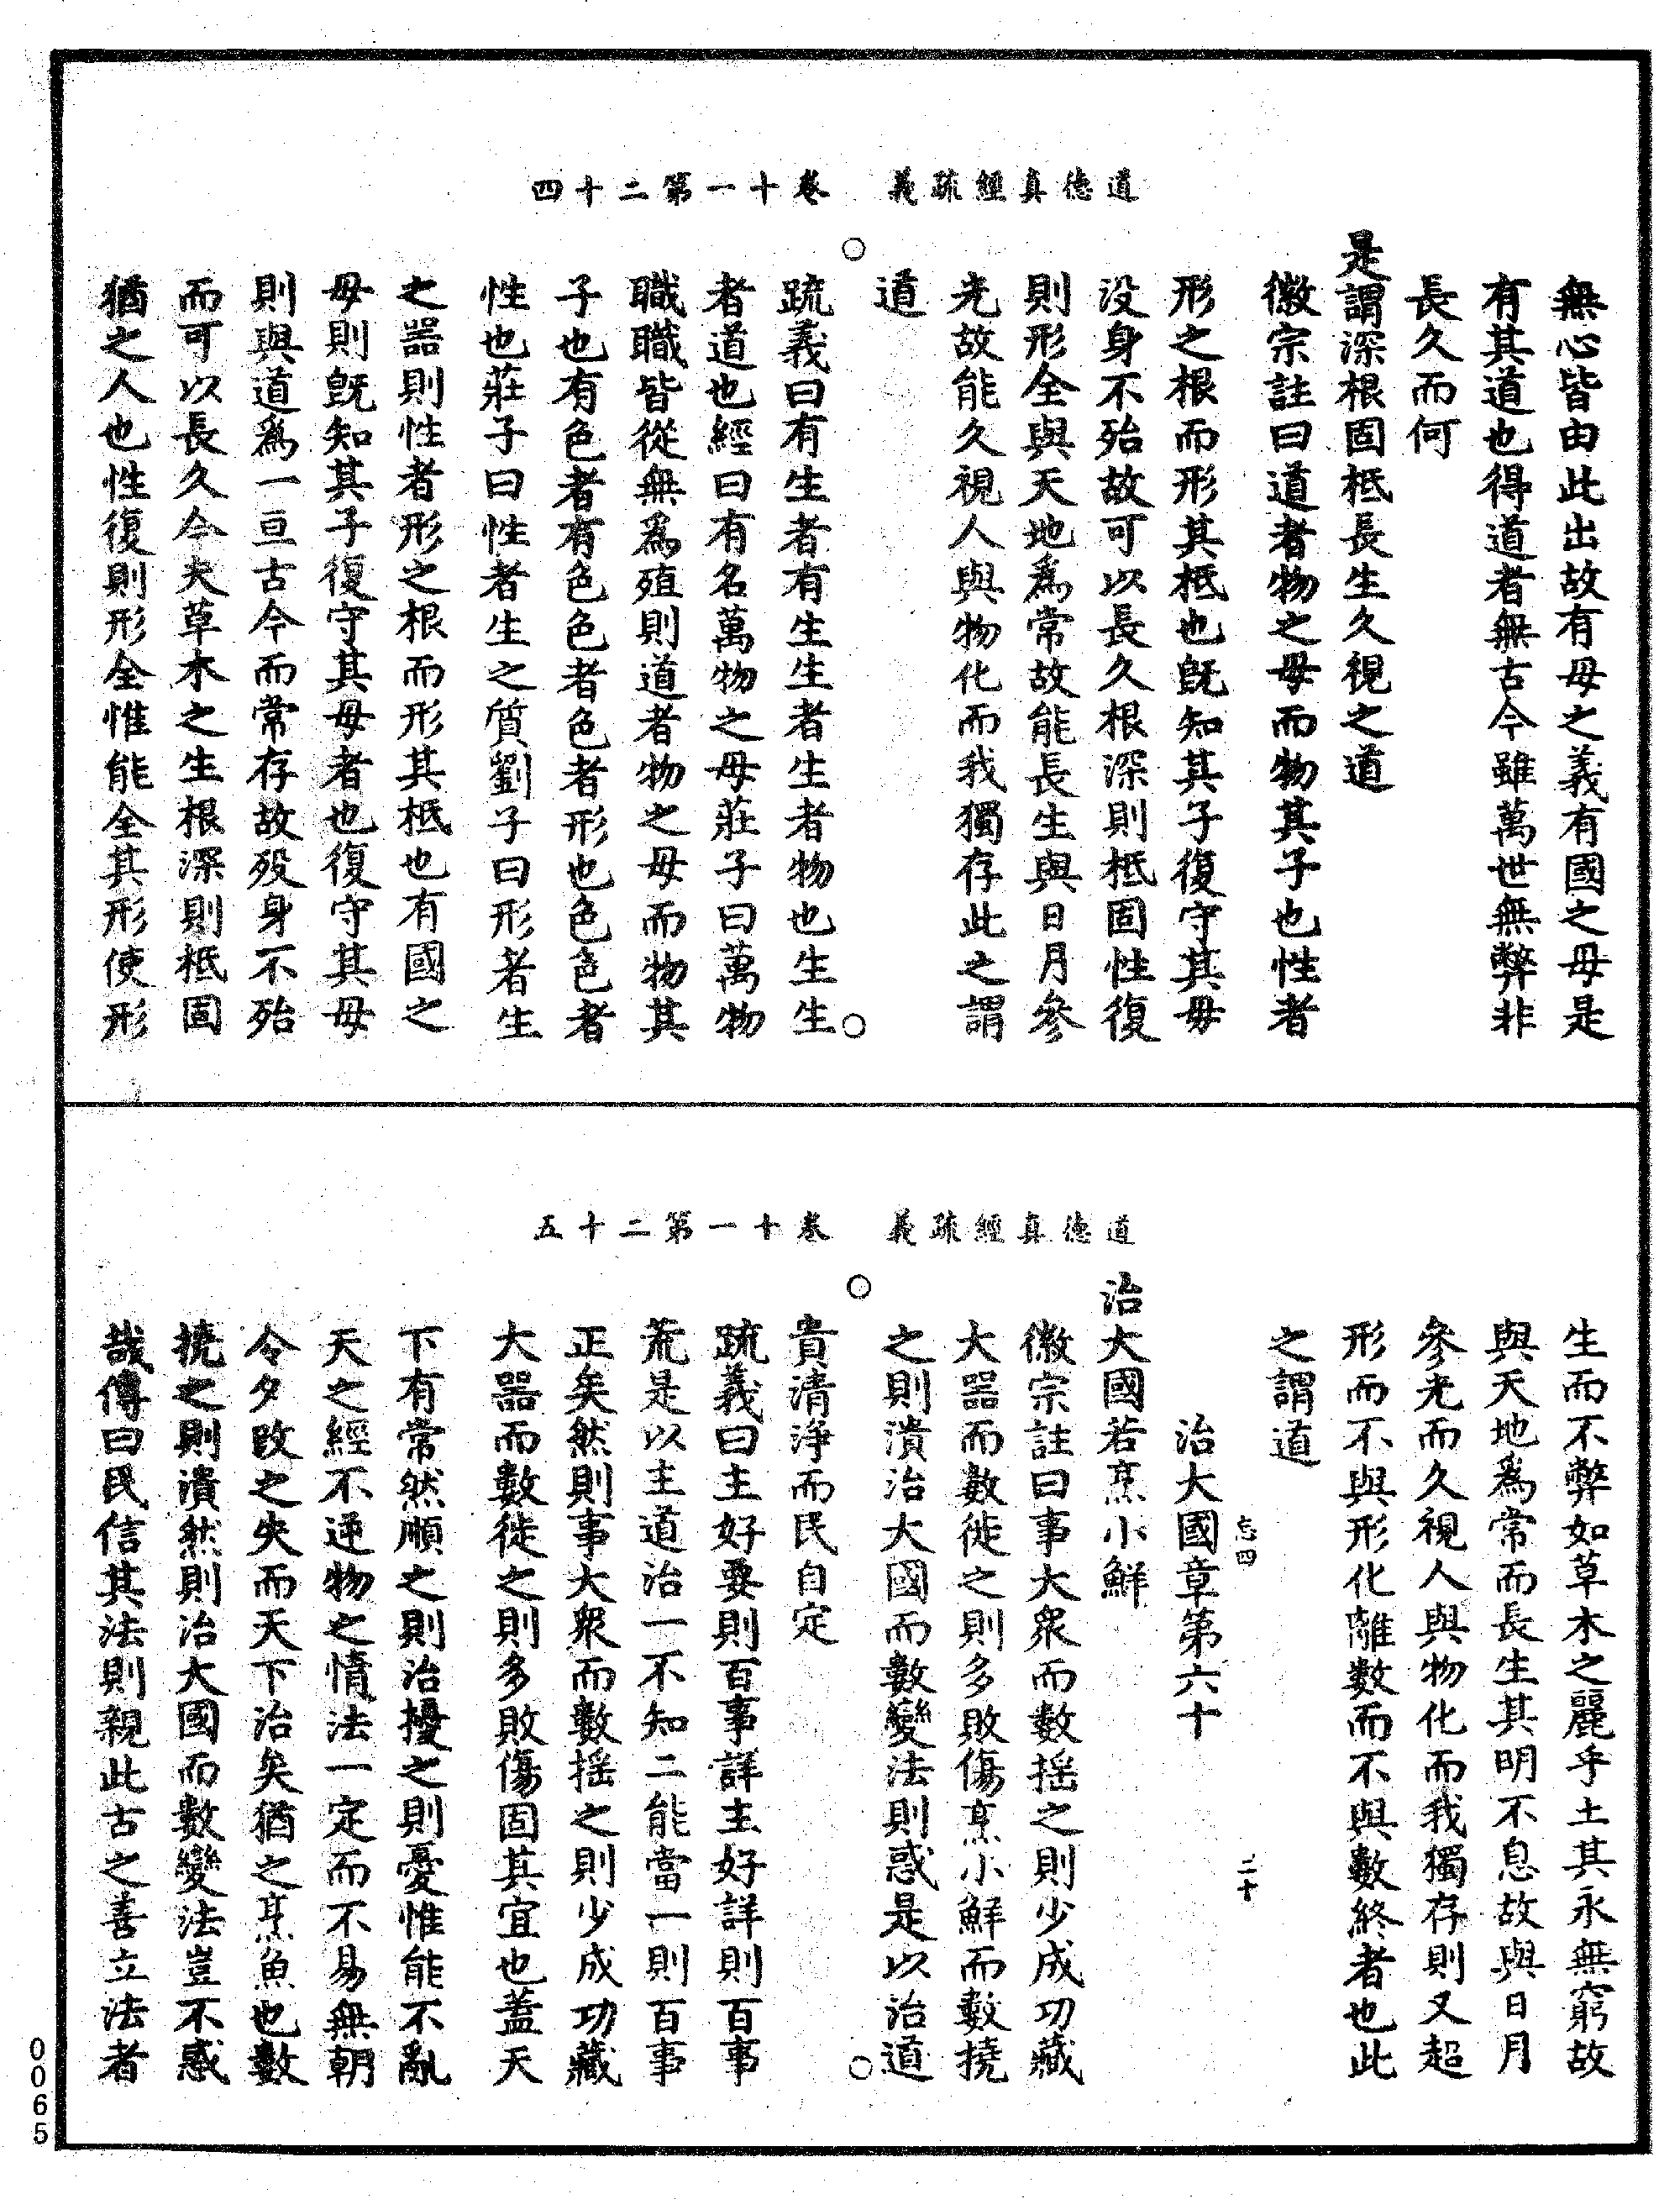 道德真經疏義　卷十一第二十四
無心皆由此出故有母之義有國之母是
有其道也得道者無古今雖萬世無弊非
長久而何
是謂深根固柢長生久視之道
徽宗註曰道者物之母而物其子也性者
形之根而形其柢也既知其子復守其母
没身不殆故可以長久根深則柢固性復
則形全與天地爲常故能長生與日月參
光故能久視人與物化而我獨存此之謂
道
疏義曰有生者有生生者生者物也生生
者道也經曰有名萬物之母莊子曰萬物
職職皆從無爲殖則道者物之母而物其
子也有色者有色色者色者形也色色者
性也莊子曰性者生之質劉子曰形者生
之器則性者形之根而形其柢也有國之
母則旣知其子復守其母者也復守其母
則與道爲一亘古今而常存故歿身不殆
而可以長久今夫草木之生根深則柢固
猶之人也性復則形全惟能全其形使形
道德真經疏義　卷十一第二十五
生而不弊如草木之麗乎土其永無窮故
與天地爲常而長生其明不息故與日月
參光而久視人與物化而我獨存則又超
形而不與形化離數而不與數終者也此
之謂道
忘四　二十
治大國章第六十
治大國若烹小鮮
徽宗註曰事大衆而數揺之則少成功藏
大器而數徙之則多敗傷烹小鮮而數撓
之則潰治大國而數變法則惑是以治道
貴清淨而民自定
疏義曰主好要則百事詳主好詳則百事
荒是以主道治一不知二能當一則百事
正矣然則事大衆而數揺之則少成功藏
大器而數徙之則多敗傷固其宜也蓋天
下有常然順之則治擾之則憂惟能不亂
天之經不逆物之情法一定而不易無朝
令夕改之失而天下治矣猶之烹魚也數
撓之則潰然則治大國而數變法豈不惑
哉傳曰民信其法則親此古之善立法者
0065